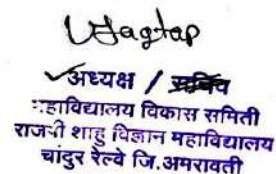 Jagtap
✓अध्यक्ष / सचिव
महाविद्यालय विकास समिती
राजर्षी शाहु विज्ञान महाविद्यालय
चांदुर रेल्वे जि.अमरावती